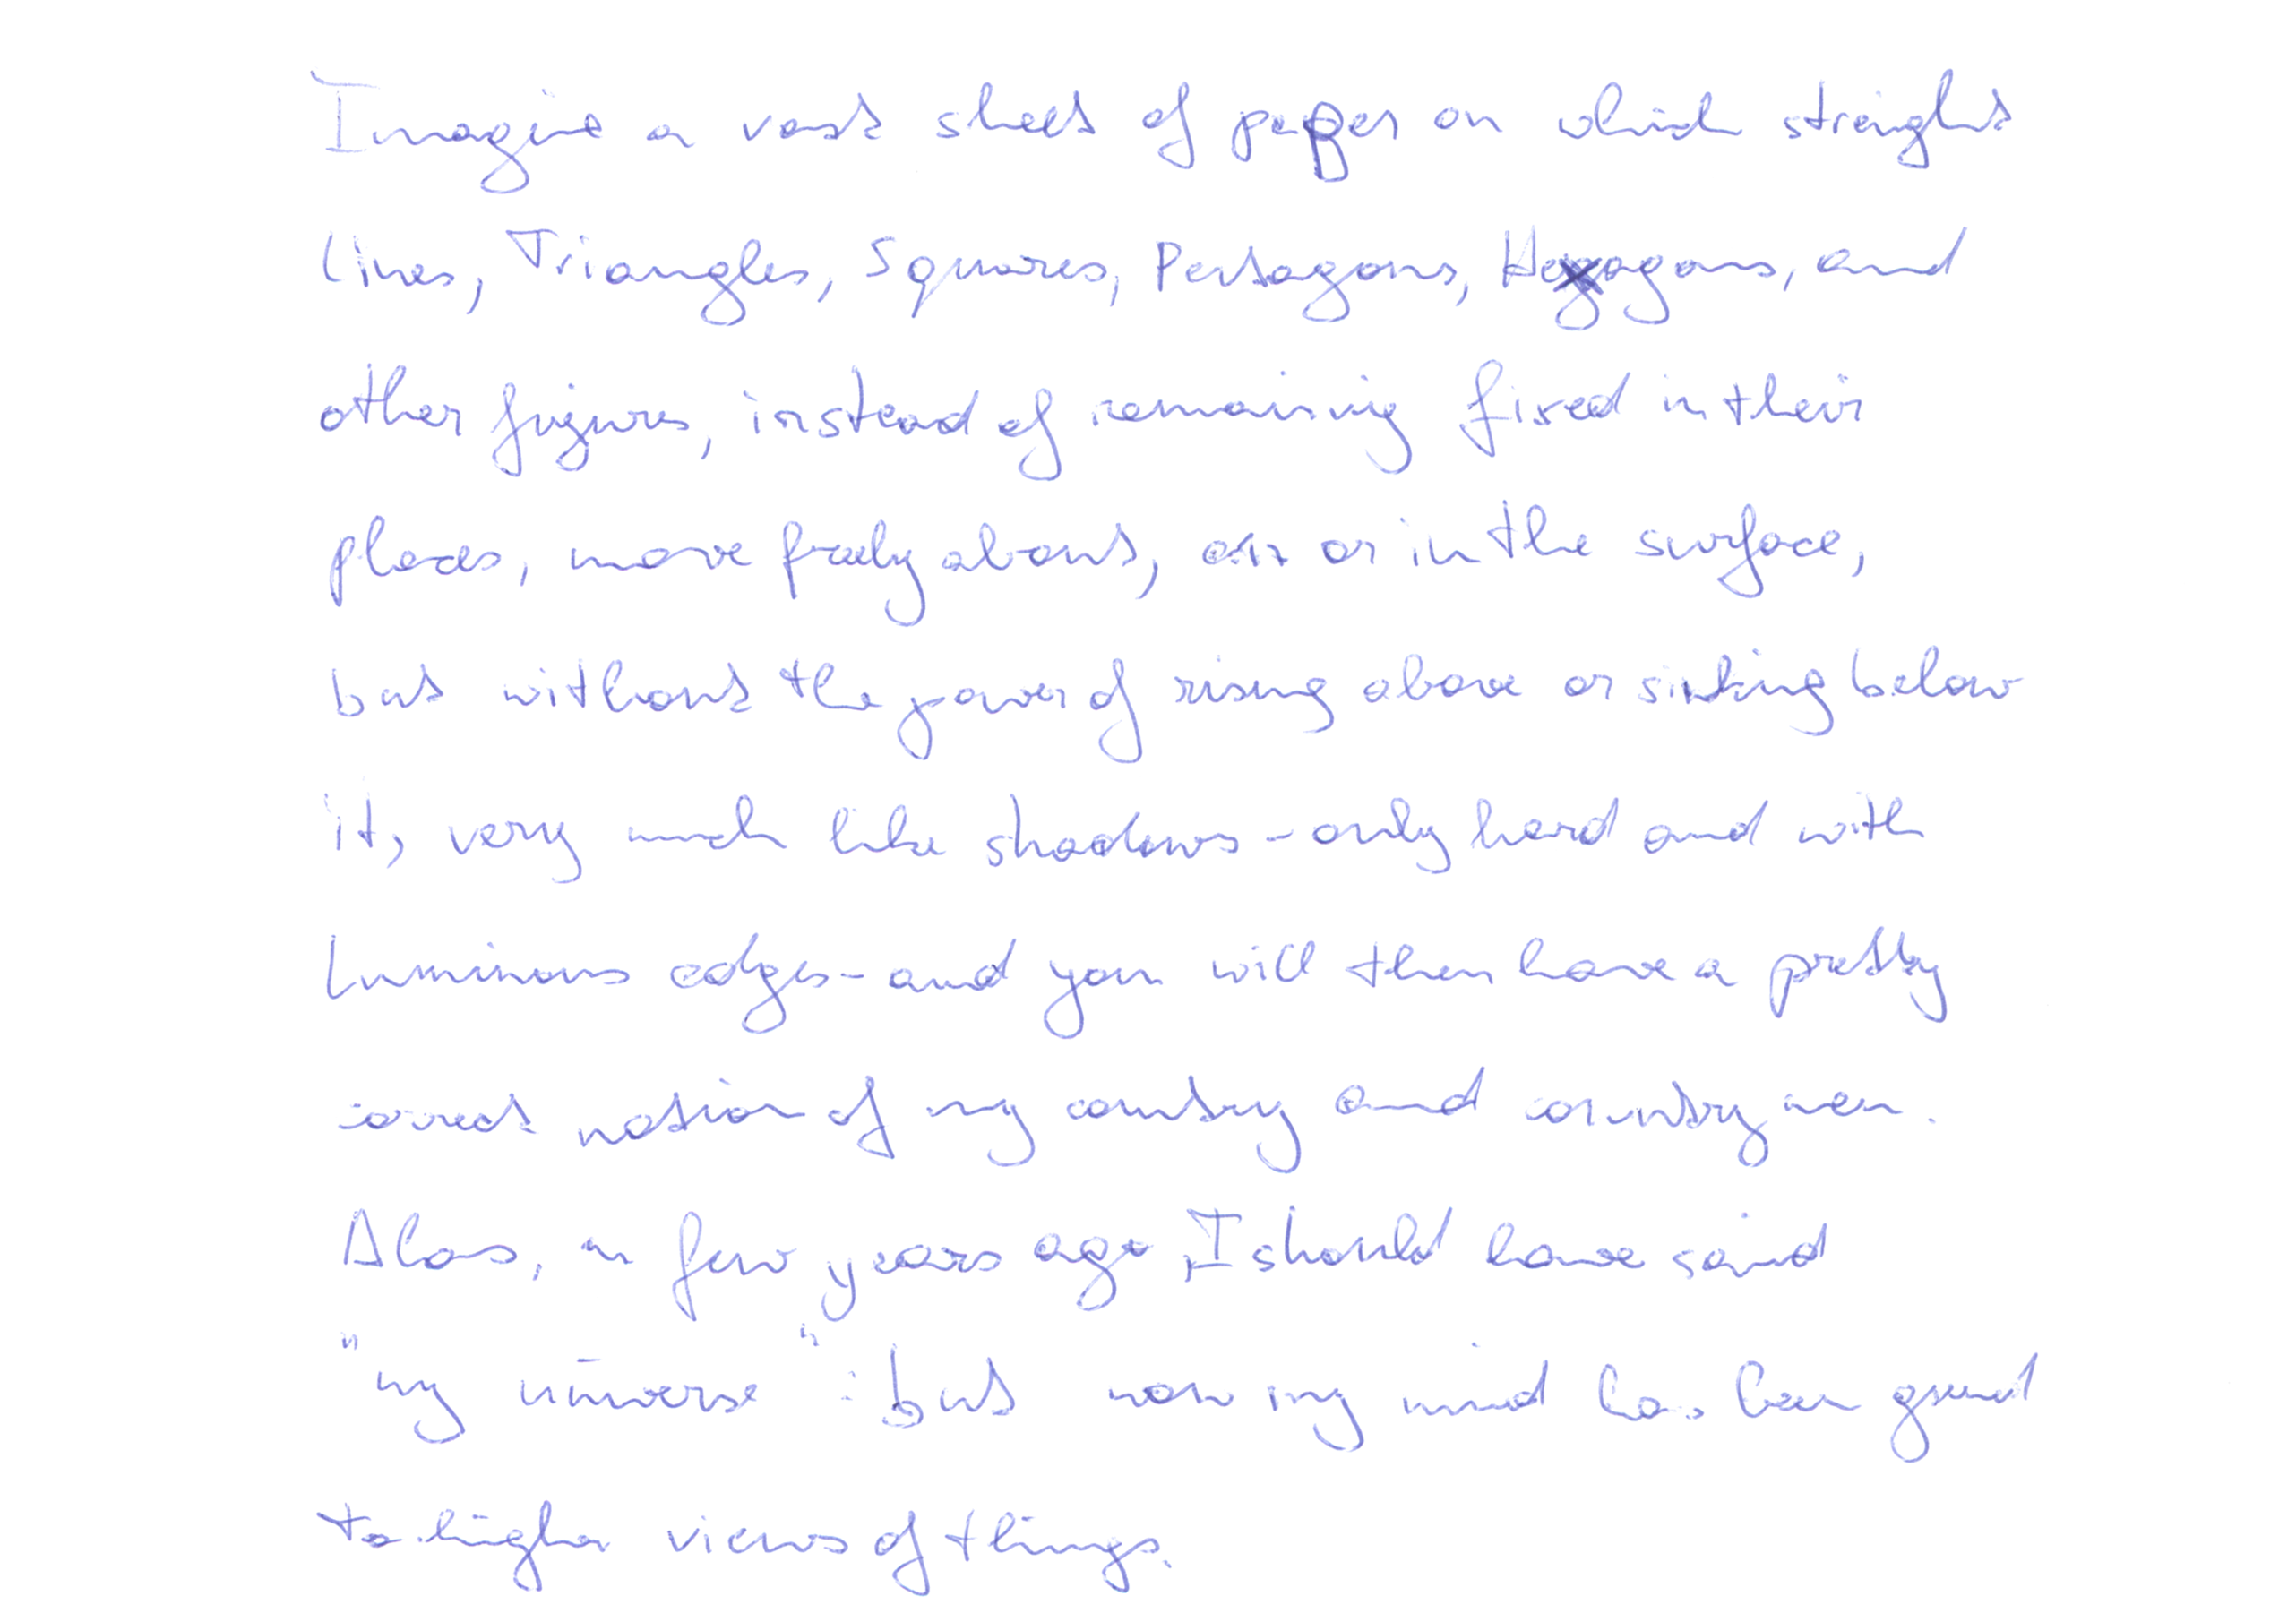 Imagine a vast sheet of paper on which straight
Lines, Triangles, Squares, Pentagons, Hexagons, and
other figures, instead of remaining fixed in their
places, move freely about, on or in the surface,
but without the power of rising above or sinking below
it, very much like shadows - only hard and with
luminous edges - and you will then have a pretty
correct notion of my country and countrymen.
Alas, a few years ago, I should have said
"my universe": but now my mind has been opened
to higher views of things.